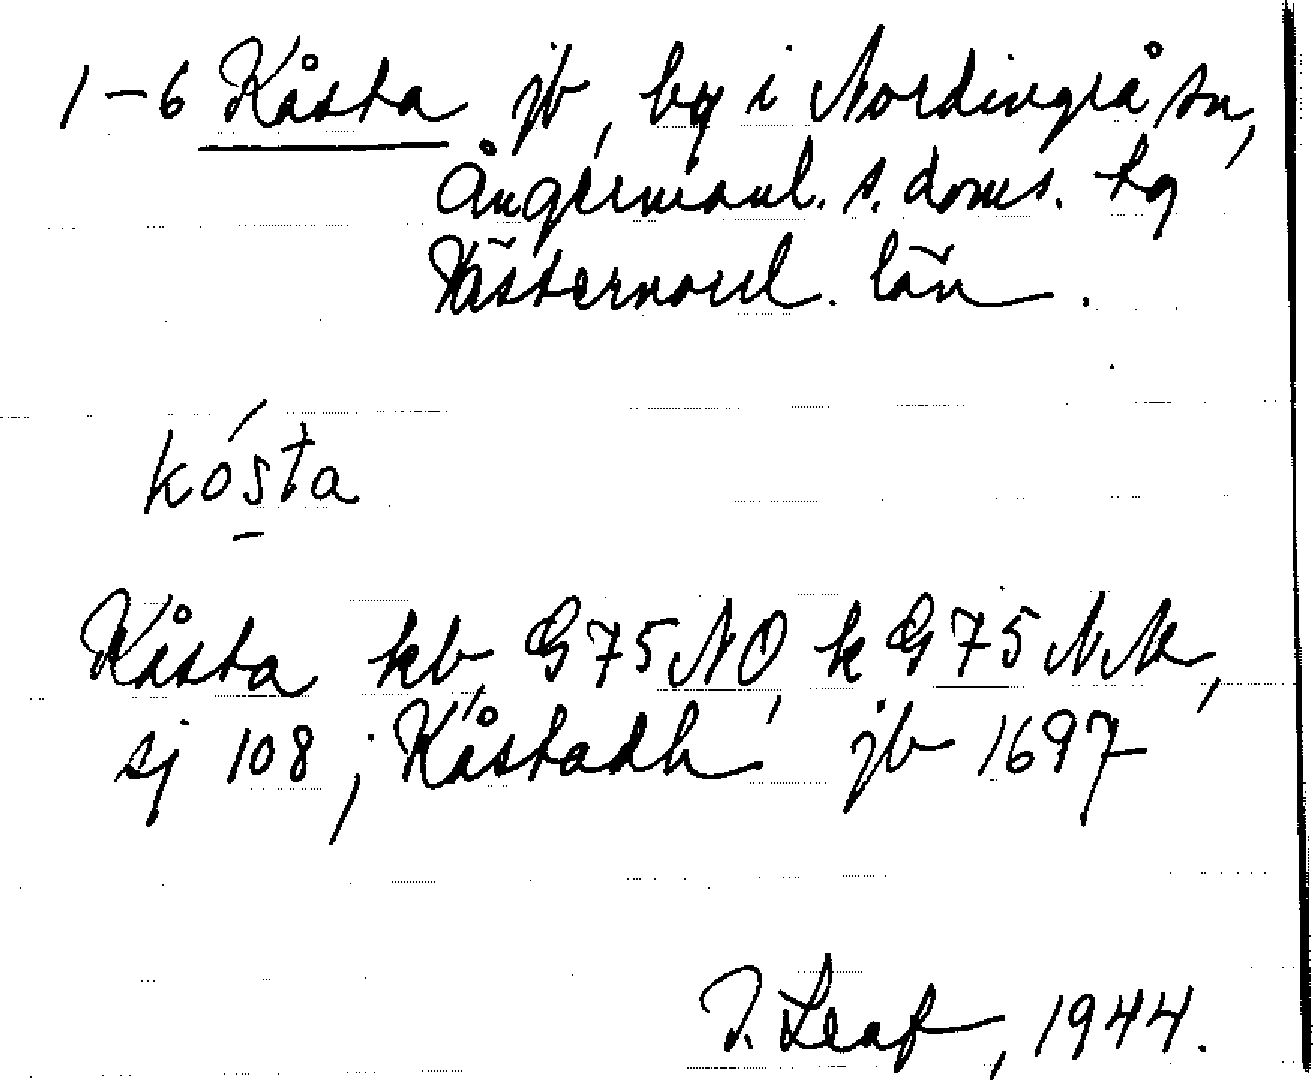 1–6 Kåsta jb, by i Nordingrå sn,
Ångermanl. s. doms. hg
Västernorrl. län.
kósta
Kåsta kb G75NO, k G75
sj 108; Kåstadh jb 1697
1944.